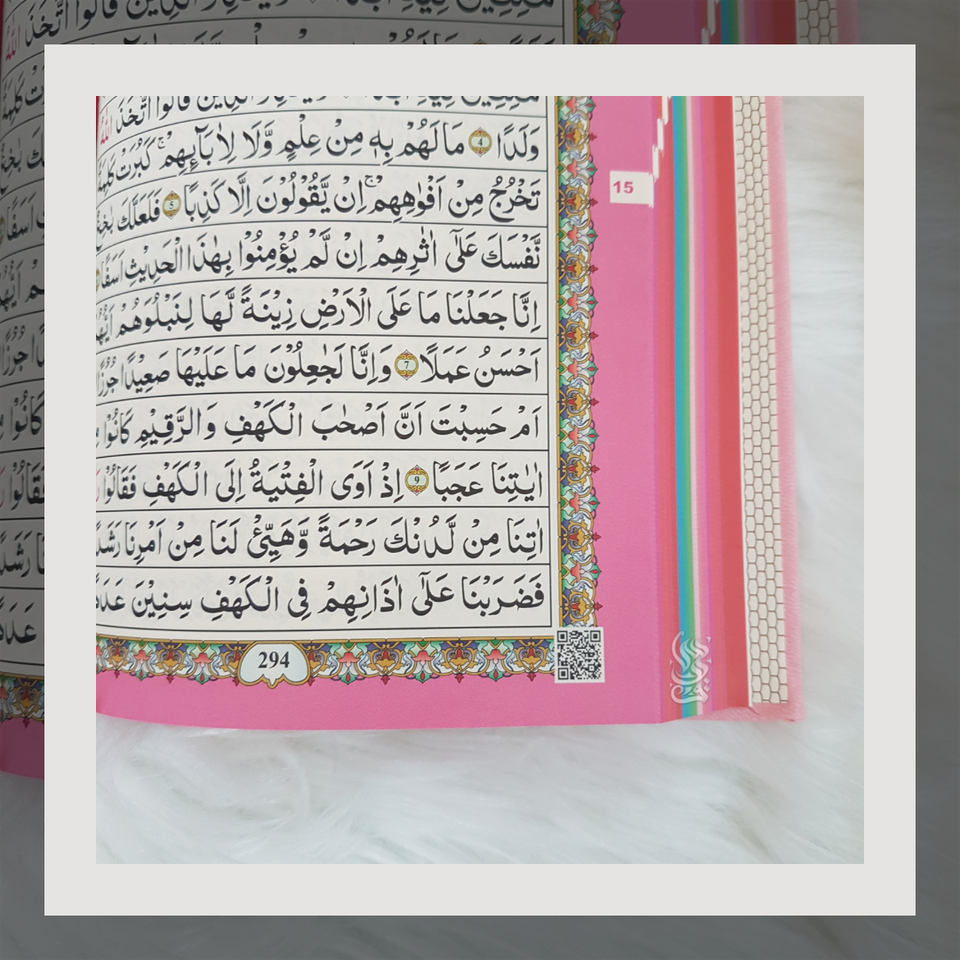 وَلَدًا ٤ مَا لَهُمْ بِهٖ مِنْ عِلْمٍ وَّلَا لِاٰبَآئِهِمْ ۚ كَبُرَتْ كَلِمَةً
تَخْرُجُ مِنْ اَفْوَاهِهِمْ ۚ اِنْ يَّقُوْلُوْنَ اِلَّا كَذِبًا ٥ فَلَعَلَّكَ
نَّفْسَكَ عَلٰٓى اٰثَارِهِمْ اِنْ لَّمْ يُؤْمِنُوْا بِهٰذَا الْحَدِيْثِ اَسَفًا
اِنَّا جَعَلْنَا مَا عَلَى الْاَرْضِ زِيْنَةً لَّهَا لِنَبْلُوَهُمْ
اَحْسَنُ عَمَلًا ٧ وَاِنَّا لَجٰعِلُوْنَ مَا عَلَيْهَا صَعِيْدًا جُرُزًا
اَمْ حَسِبْتَ اَنَّ اَصْحٰبَ الْكَهْفِ وَالرَّقِيْمِ كَانُوْا
اٰيٰتِنَا عَجَبًا ٩ اِذْ اَوَى الْفِتْيَةُ اِلَى الْكَهْفِ فَقَالُوْا
اٰتِنَا مِنْ لَّدُنْكَ رَحْمَةً وَّهَيِّئْ لَنَا مِنْ اَمْرِنَا رَشَدًا
فَضَرَبْنَا عَلٰٓى اٰذَانِهِمْ فِى الْكَهْفِ سِنِيْنَ عَدَدًا
294
15